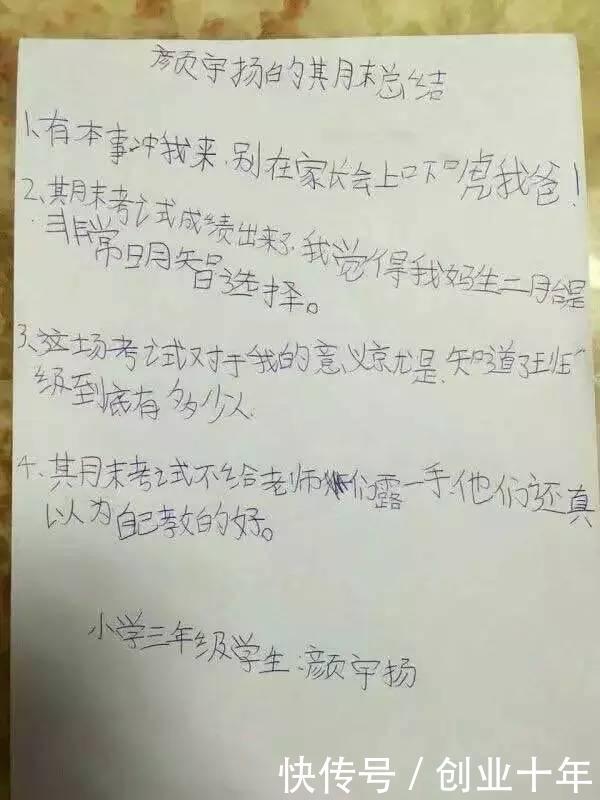 颜宇扬的期末总结
1、有本事冲我来,别在家长会上吓唬我爸!
2、期末考试成绩出来了,我觉得我妈生二胎是
非常明智选择。
3、这场考试对于我的意义就是,知道了班
级到底有多少人.
4、期末考试不给老师们露一手,他们还真
以为自己教的好。
小学三年级学生:颜宇扬
快传号 / 创业十年